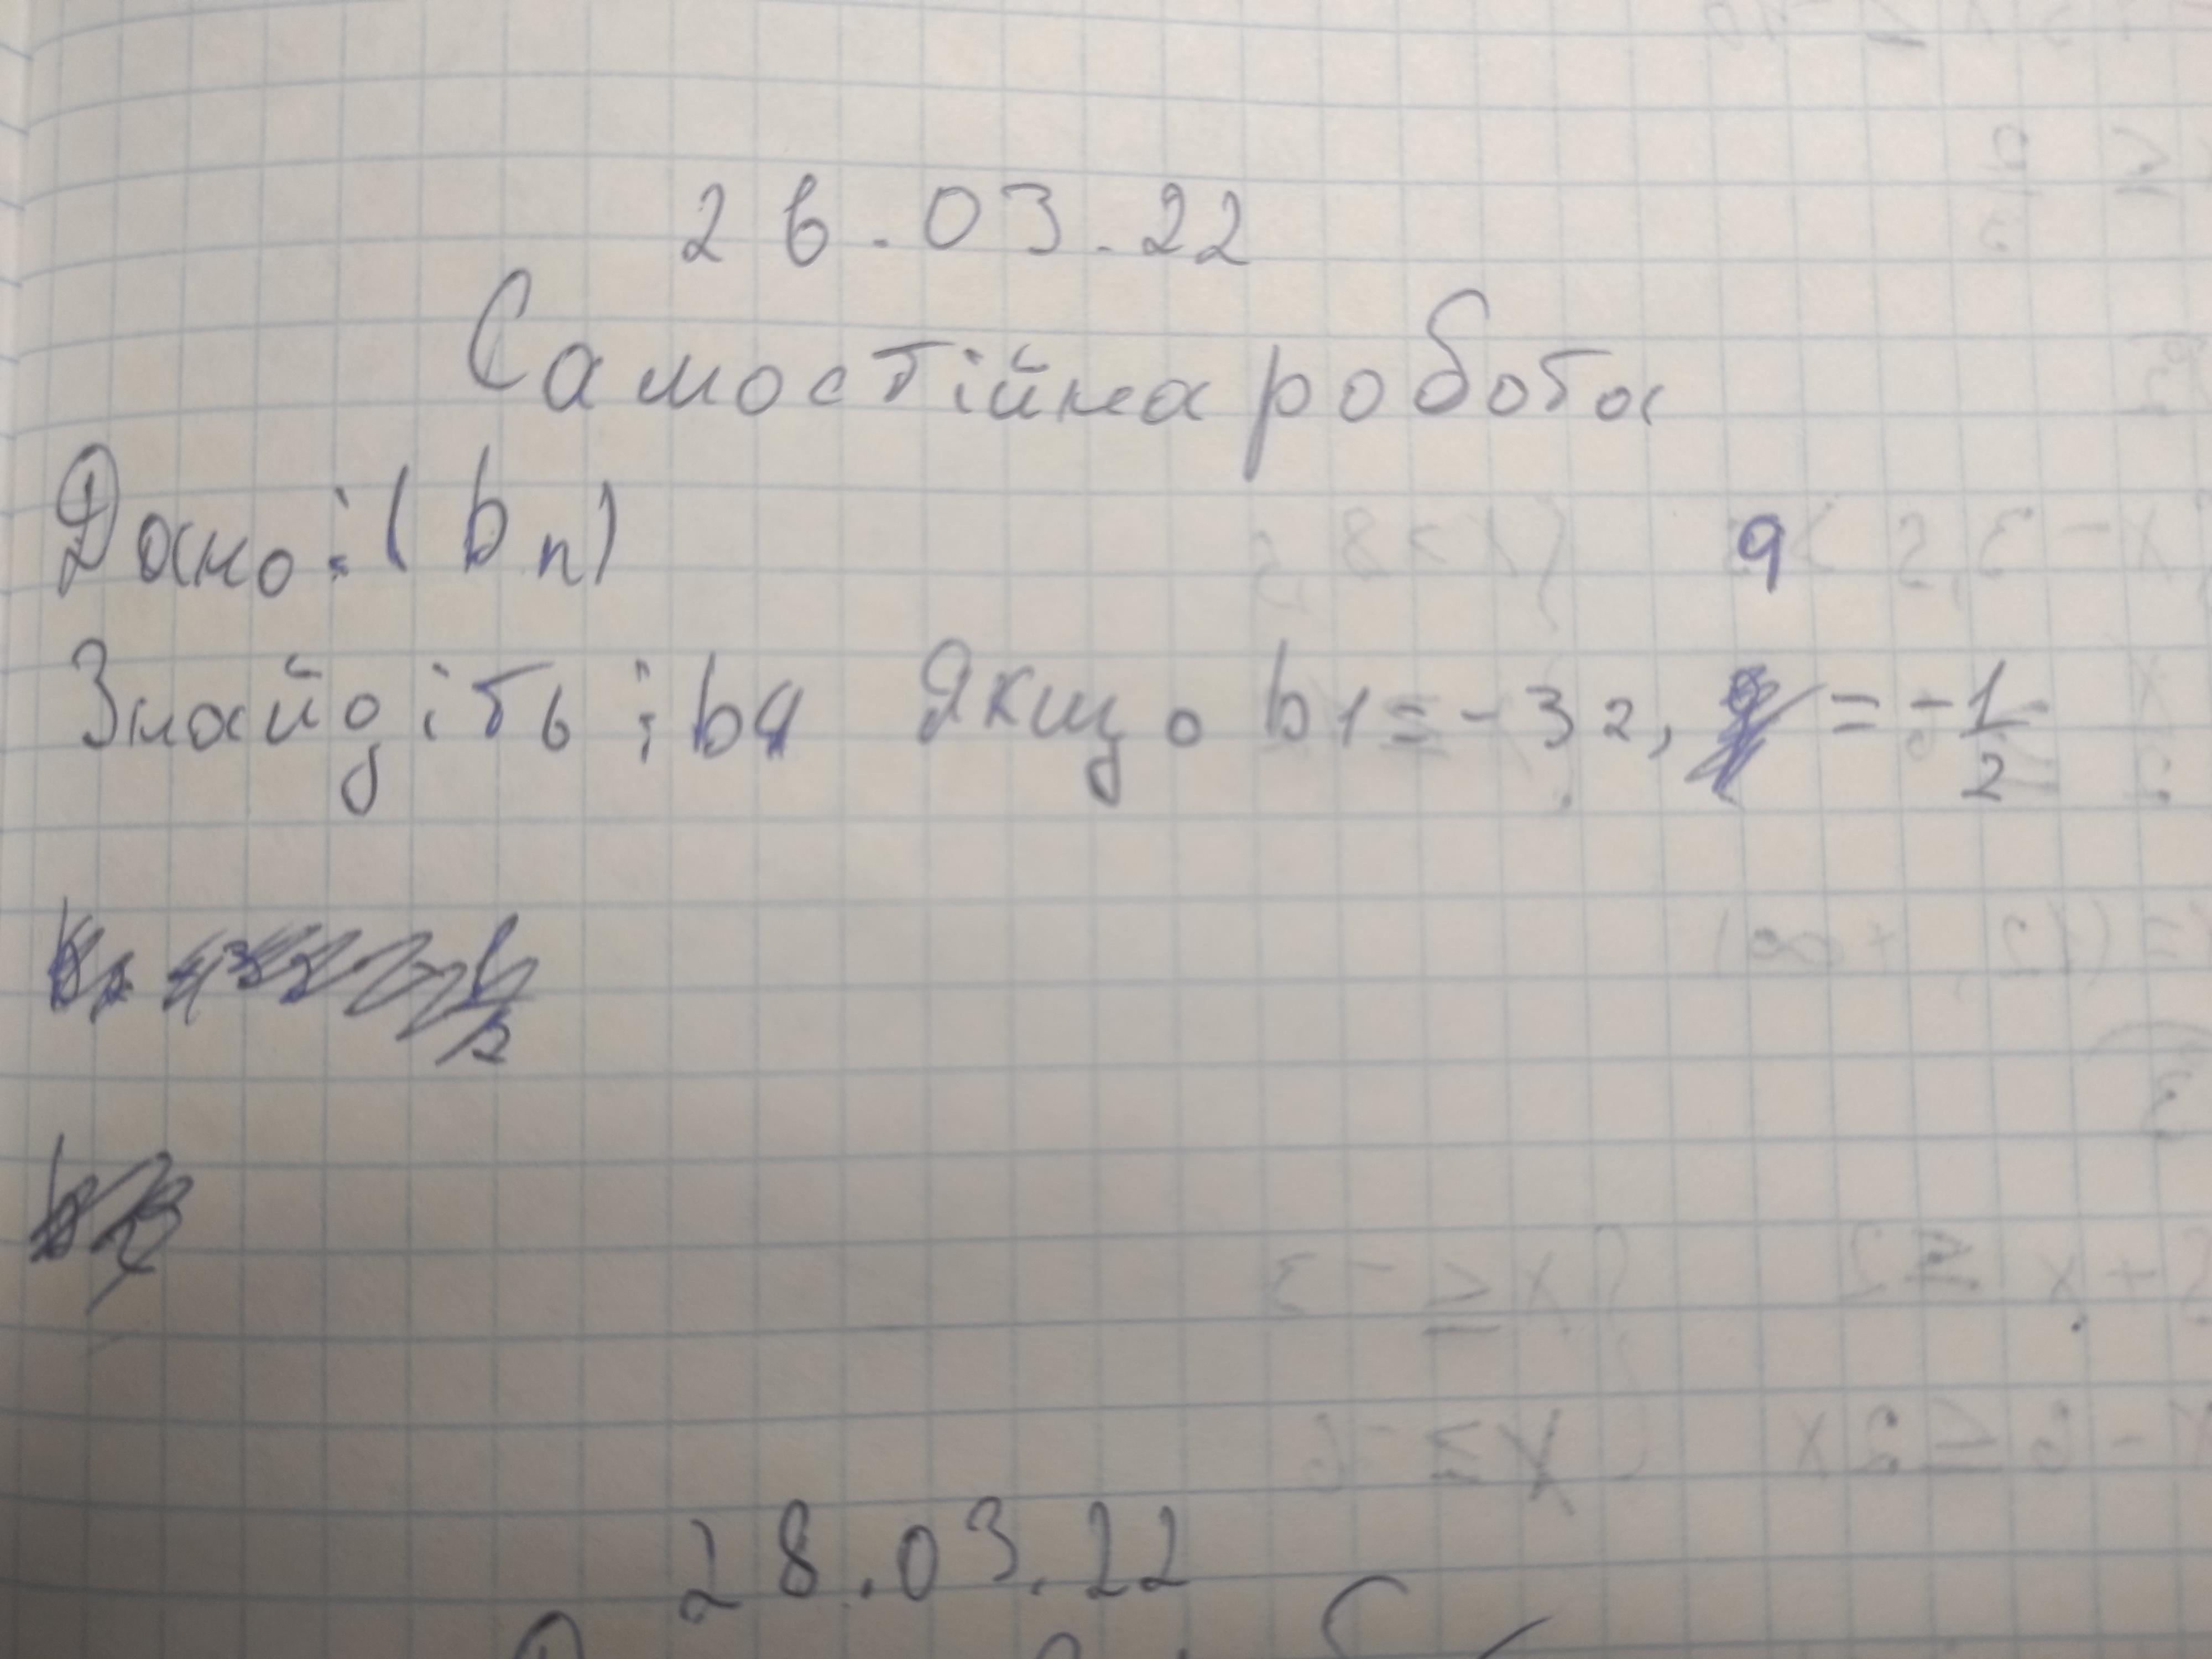 26.03.22
Самостійна робота
Дано: (bn)
q
Знайдіть: b4 Якщо b1 = -32, = -1/2
28.03.22